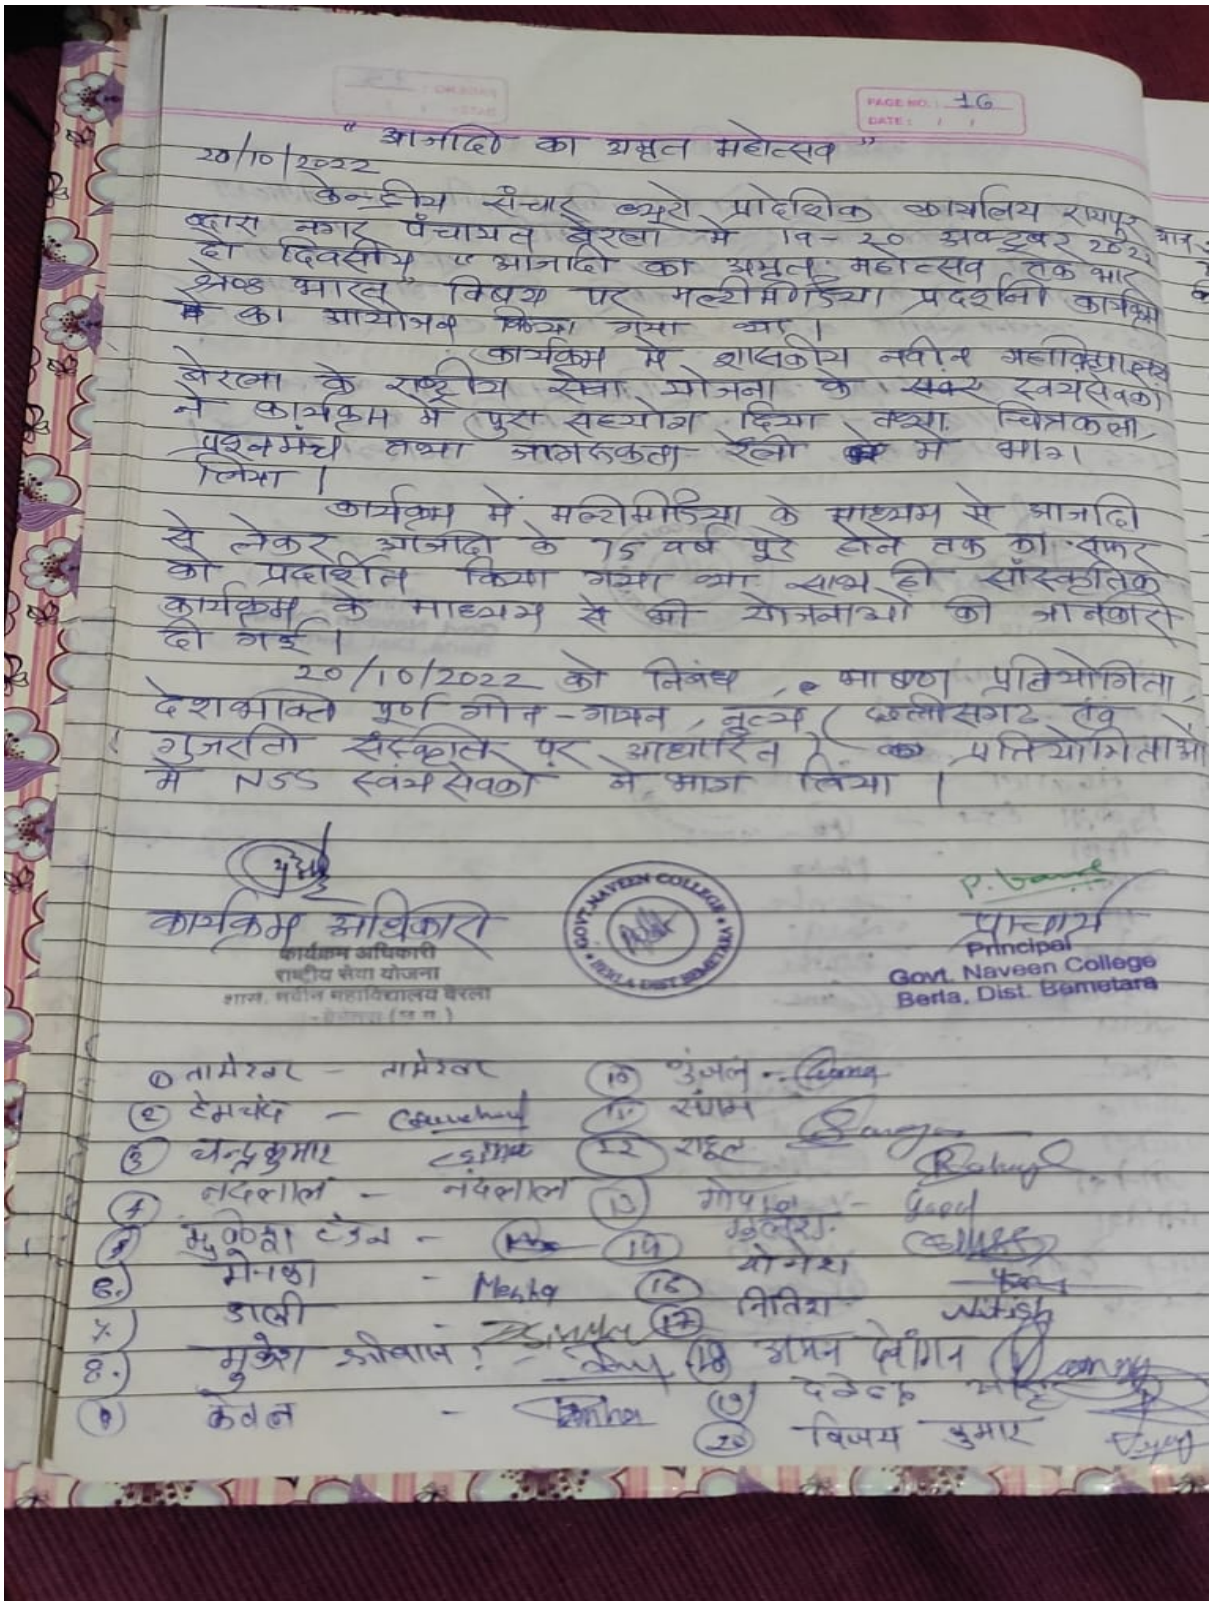 PAGE NO.: 16
DATE: / /
" आजादी का अमृत महोत्सव "
20/10/2022
केन्द्रीय संचार ब्युरो प्रादेशिक कार्यालय रायपुर
द्वारा नगर पंचायत बेरला मे 19-20 अक्टुबर 2022
दो दिवसीय " आजादी का अमृत महोत्सव एक भारत
श्रेष्ठ भारत" विषय पर मल्टीमीडिया प्रदर्शनी कार्यक्रम
का आयोजन किया गया था।
कार्यक्रम मे शासकीय नवीन महाविद्यालय
बेरला के राष्ट्रीय सेवा योजना के स्वयंसेवको
ने कार्यक्रम मे पुरा सहयोग दिया तथा चित्रकला,
प्रश्नमंच तथा जागरूकता रैली मे भाग
लिया।
कार्यक्रम में मल्टीमीडिया के माध्यम से आजादी
से लेकर आजादी के 75 वर्ष पुरे होने तक का सफर
को प्रदर्शित किया गया था साथ ही सांस्कृतिक
कार्यक्रम के माध्यम से भी योजनाओं की जानकारी
दी गई।
20/10/2022 को निबंध, भाषण प्रतियोगिता,
देशभक्ति पूर्ण गीत-गायन, नृत्य ( छत्तीसगढ एंव
गुजराती संस्कृति पर आधारित ) प्रतियोगिताओ
मे NSS स्वंयसेवको ने भाग लिया।
कार्यक्रम अधिकारी
कार्यक्रम अधिकारी
राष्ट्रीय सेवा योजना
शास. नवीन महाविद्यालय बेरला
GOVT. NAVEEN COLLEGE
BERLA DIST BEMETARA
प्राचार्य
Principal
Govt. Naveen College
Berla, Dist. Bemetara
① तामेश्वर - तामेश्वर
② हेमचंद -
③ चन्द्रकुमार
④ नंदलाल - नंदलाल
⑤ टंडन -
6.) मेनका - Menka
7.) डाली -
8.) मुकेश -
⑨ केवल -
⑩ -
⑪ संगम
⑫ राहुल Rahul
⑬ गोपाल -
⑭
⑯ योगेश
⑰ नितिश Nitish
⑱ अमन देवांगन
⑲
⑳ विजय कुमार